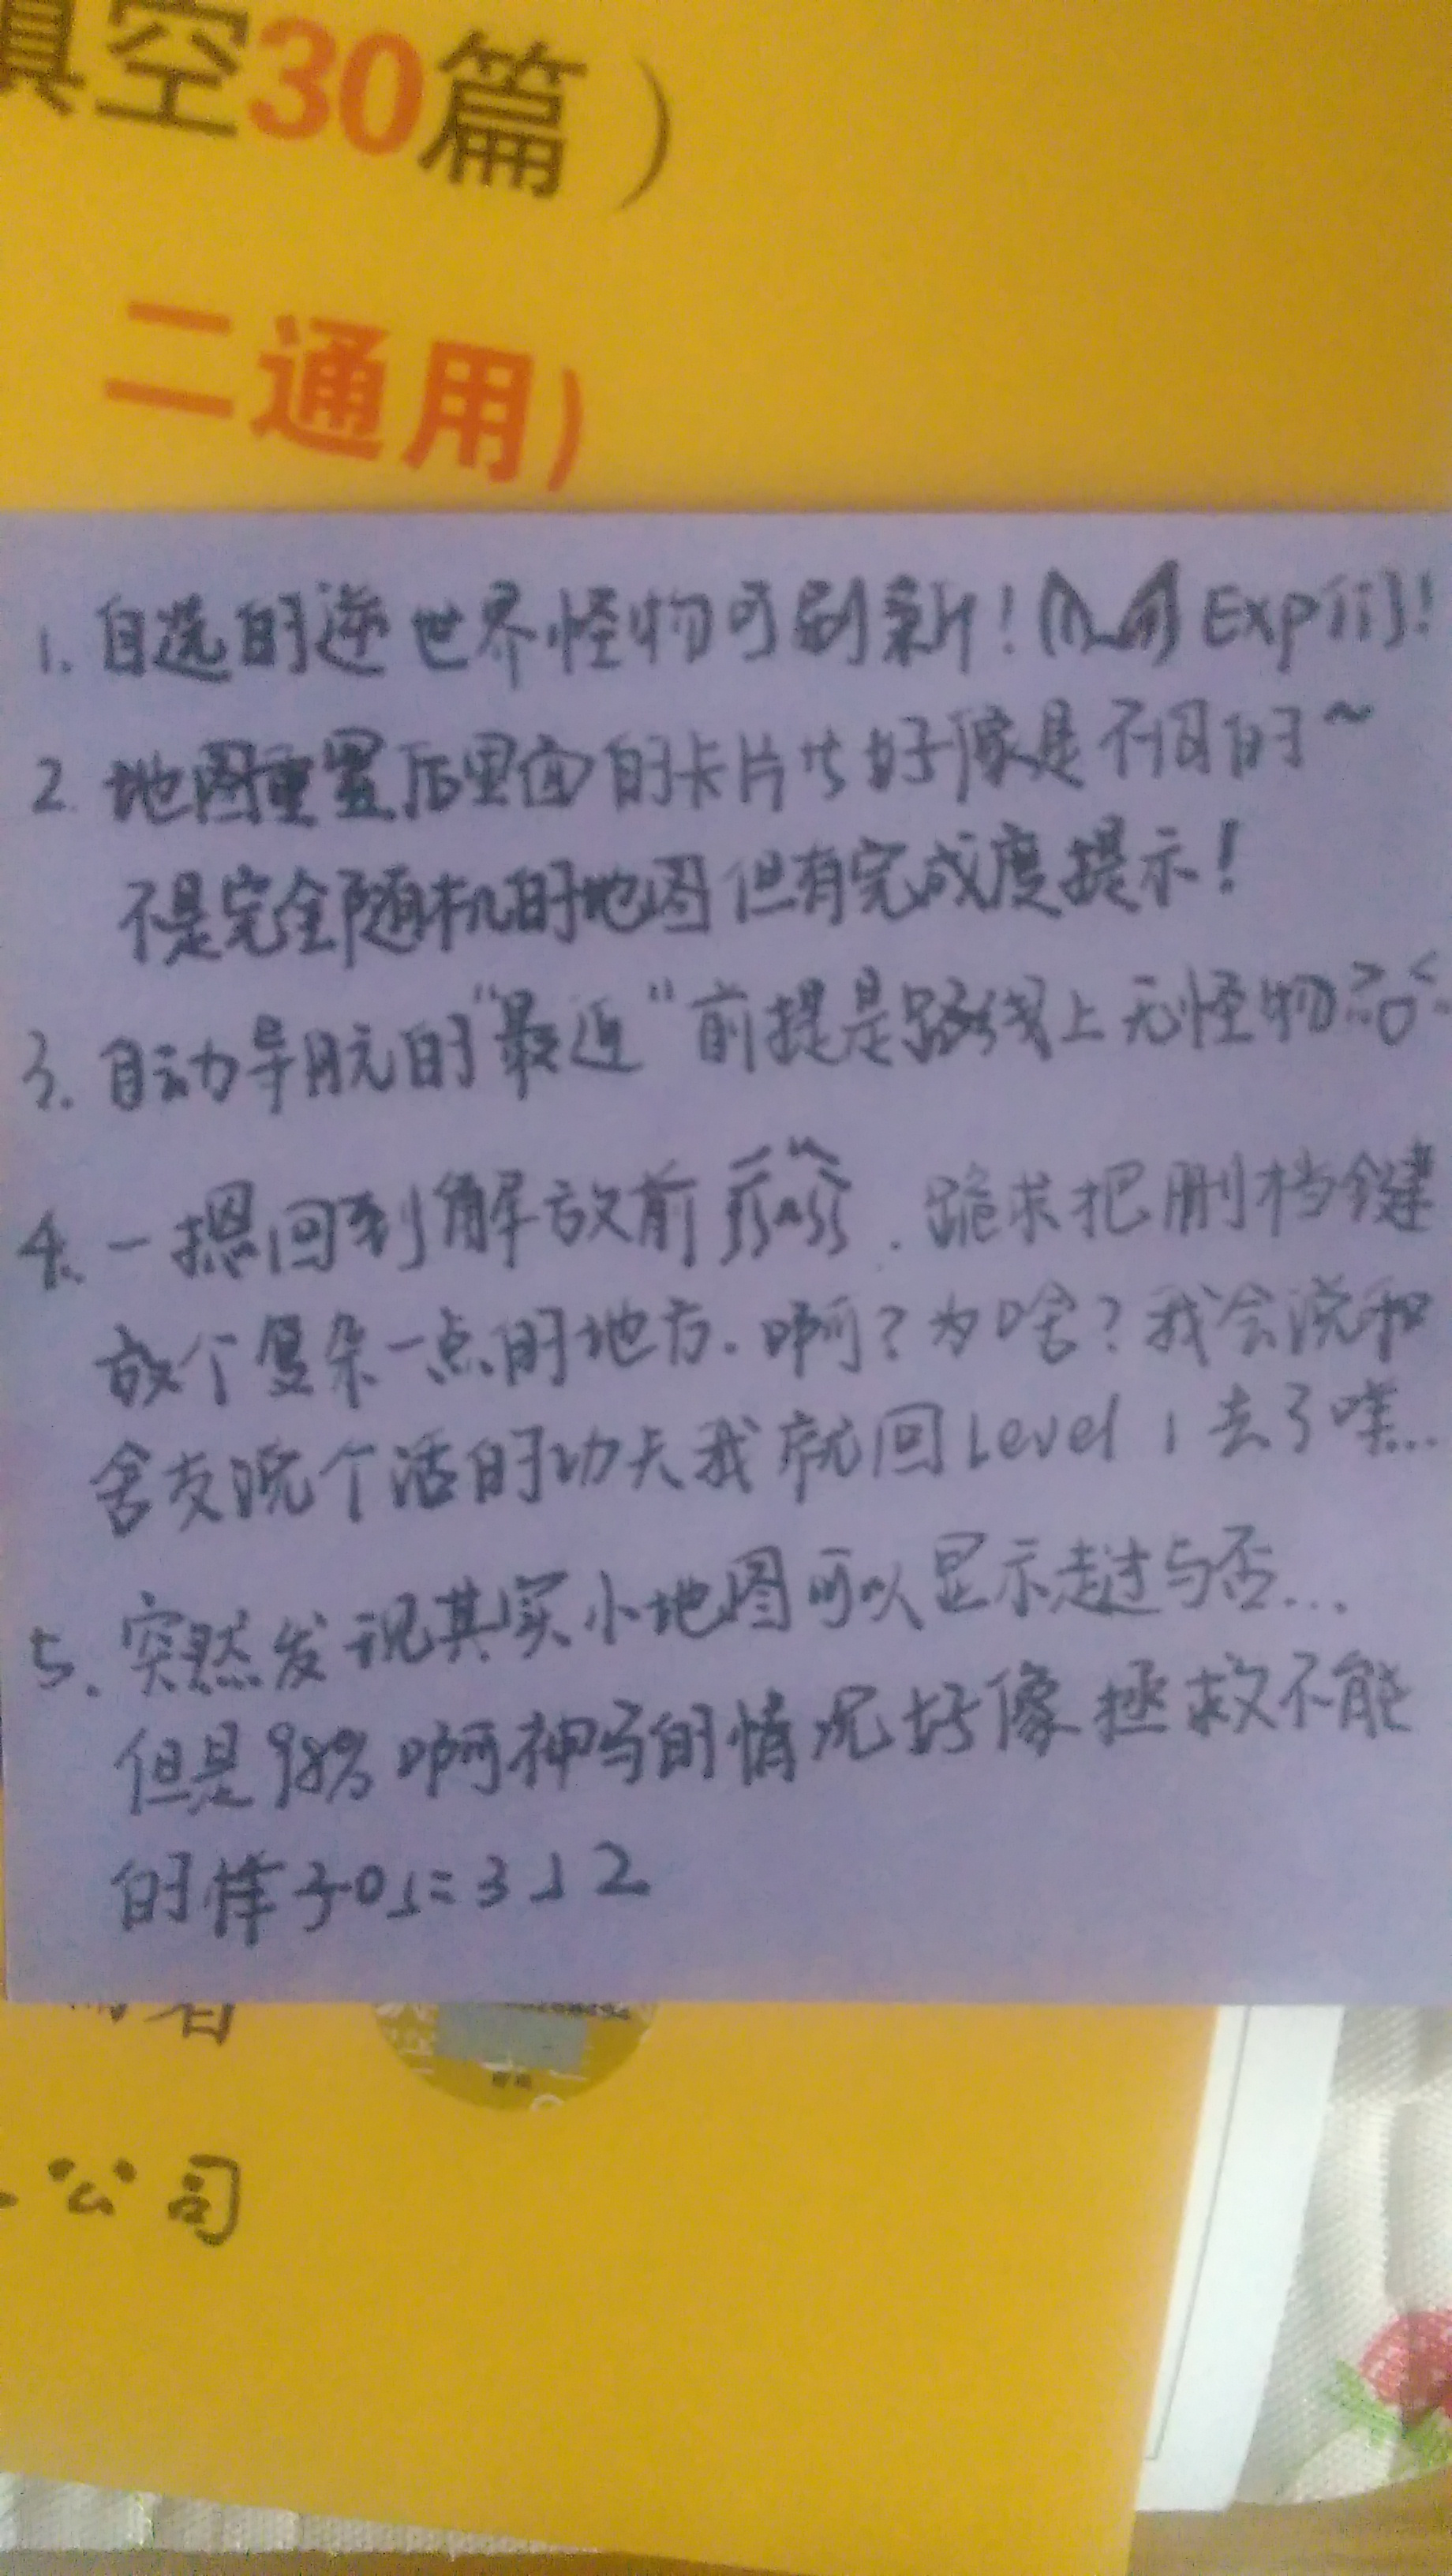 填空30篇）
二通用)
1. 自选的逆世界怪物可刷新！ Exp
2. 地图重置后里面的卡片 好像是不同的~
不是完全随机的地图但有完成度提示！
3. 自动导航的“最近”前提是路线上无怪物
4. 一摁回到解放前 . 跪求把删档键
放个复杂一点的地方. 啊？为啥？我会说和
舍友说个话的功夫我就回Level 1去了嘤...
5. 突然发现其实小地图可以显示走过与否...
但是98%啊神马的情况好像拯救不能
的样子
公司